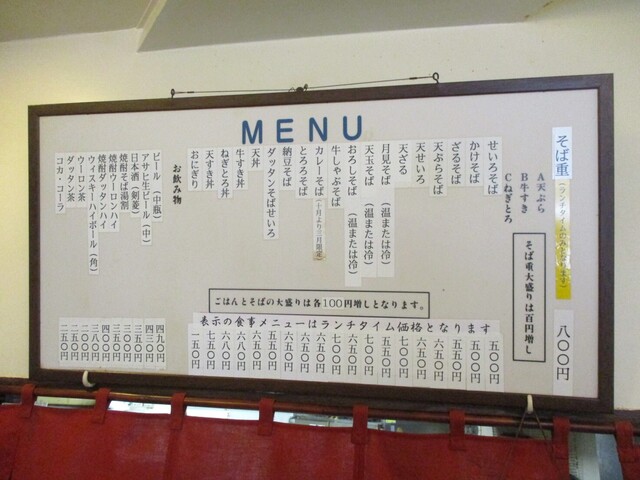 MENU
そば重（ランチタイムのみとなります） 八〇〇円
A 天ぷら
B 牛すき
C ねぎとろ
そば重大盛りは百円増し
せいろそば 五〇〇円
かけそば 五〇〇円
ざるそば 五五〇円
天ぷらそば 六五〇円
天せいろ 六五〇円
天ざる 七〇〇円
月見そば（温または冷） 五五〇円
天玉そば（温または冷） 七〇〇円
おろしそば（温または冷） 六五〇円
牛しゃぶそば 七〇〇円
カレーそば（十月より三月限定） 六五〇円
とろろそば 六五〇円
納豆そば 六五〇円
ダッタンそばせいろ 五五〇円
天丼 六五〇円
牛すき丼 六八〇円
ねぎとろ丼 六八〇円
天すき丼 七五〇円
おにぎり 一五〇円
ごはんとそばの大盛りは各100円増しとなります。
表示の食事メニューはランチタイム価格となります
お飲み物
ビール（中瓶） 四九〇円
アサヒ生ビール（中） 四三〇円
日本酒（剣菱） 三五〇円
焼酎そば湯割 三五〇円
焼酎ウーロンハイ 三五〇円
焼酎ダッタンハイ 四〇〇円
ウィスキーハイボール（角） 三八〇円
ウーロン茶 二五〇円
ダッタン茶 二五〇円
コカ・コーラ 二五〇円